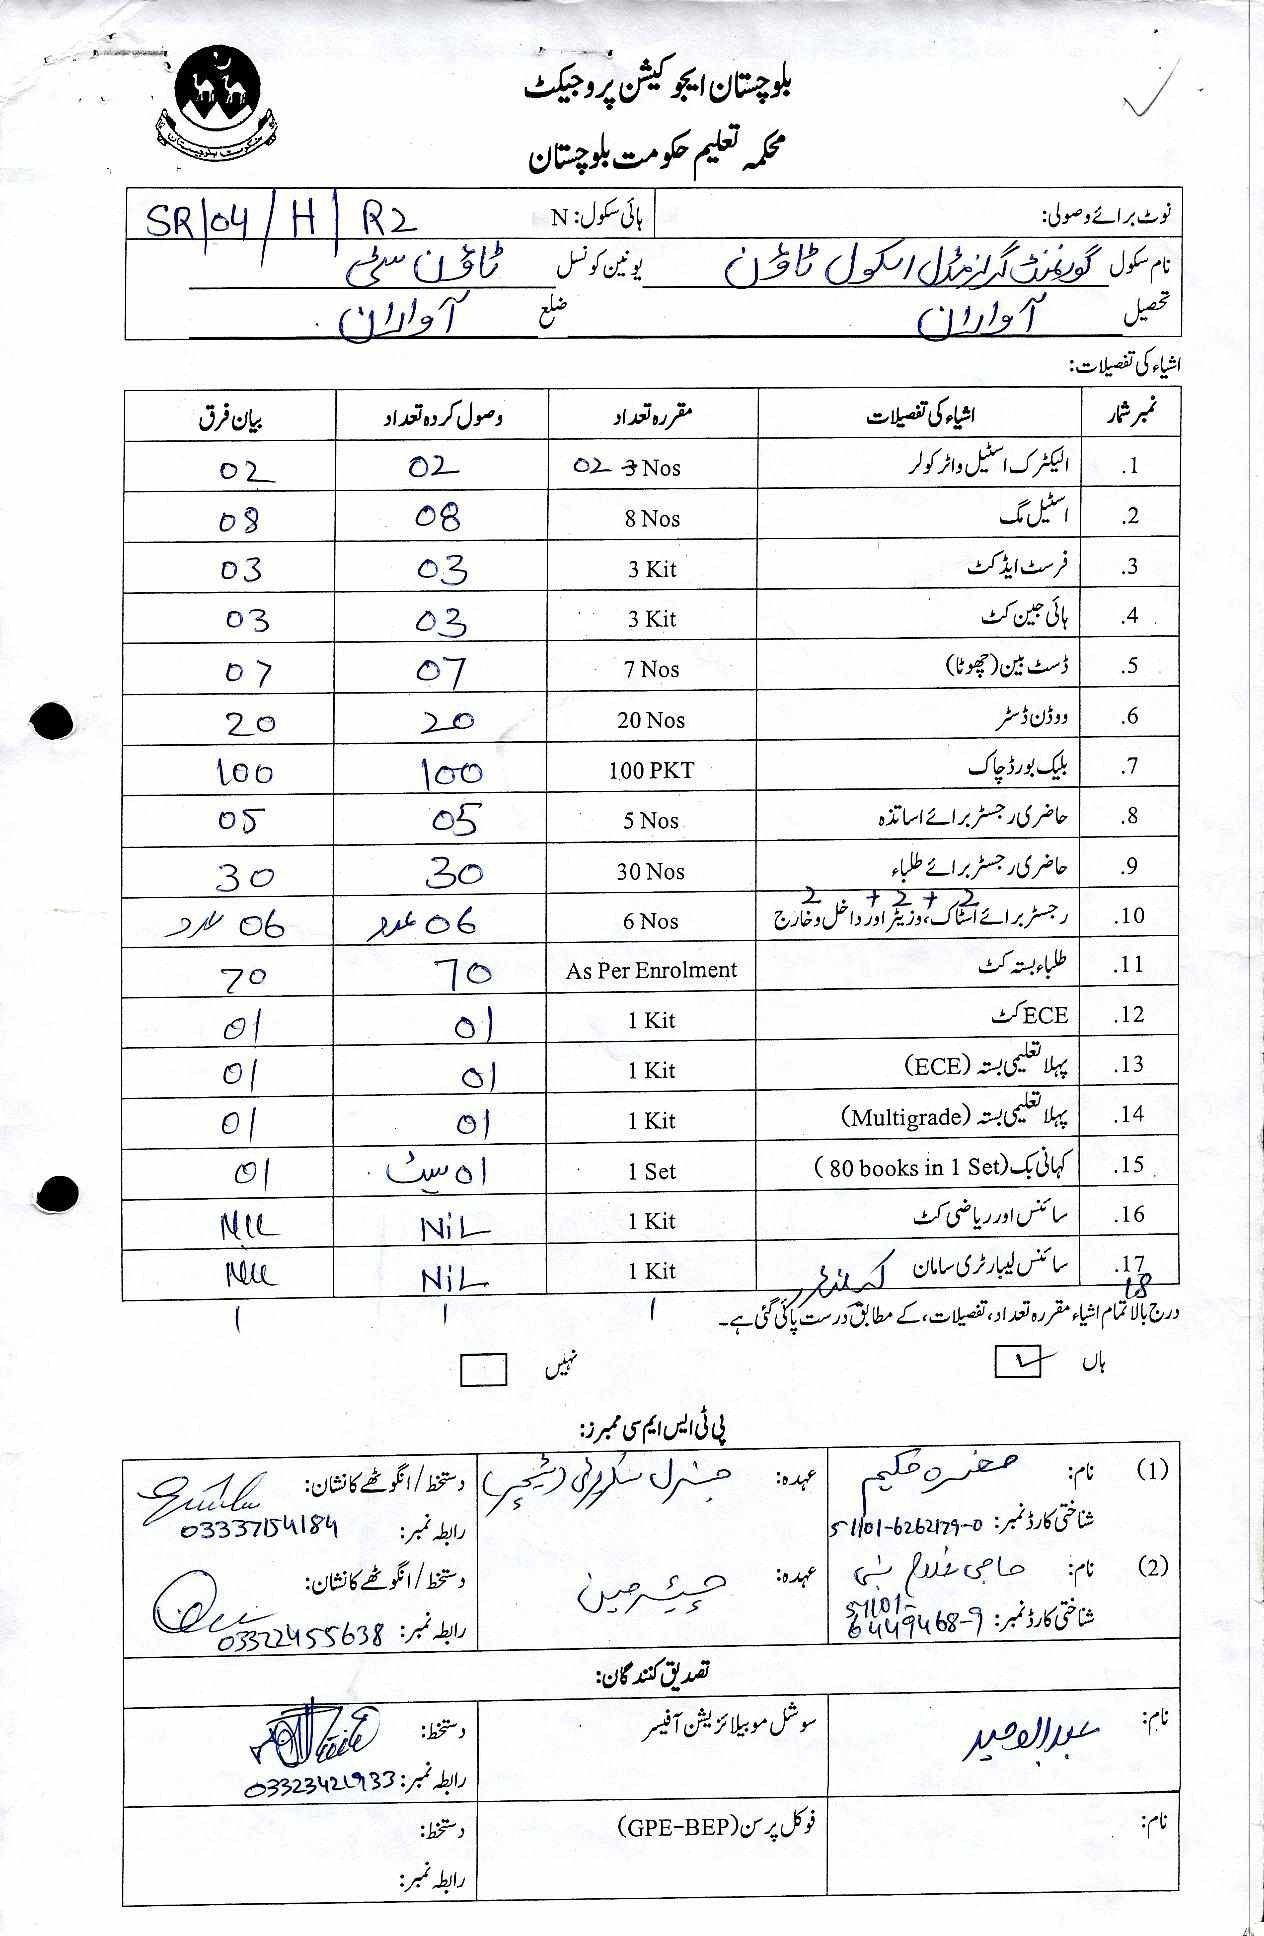 بلوچستان ایجوکیشن پروجیکٹ
محکمہ تعلیم حکومت بلوچستان
حکومت بلوچستان
نوٹ برائے وصولی: ہائی سکول: N SR/04/H/R2
نام سکول گورنمنٹ گرلز مڈل اسکول ٹاؤن یونین کونسل ٹاؤن سٹی
تحصیل آواران ضلع آواران
اشیاء کی تفصیلات:
نمبر شمار اشیاء کی تفصیلات مقررہ تعداد وصول کردہ تعداد بیان فرق
1. الیکٹرک اسٹیل واٹر کولر 02 3 Nos 02 02
2. اسٹیل مگ 8 Nos 08 08
3. فرسٹ ایڈ کٹ 3 Kit 03 03
4. ہائی جین کٹ 3 Kit 03 03
5. ڈسٹ بین (چھوٹا) 7 Nos 07 07
6. ووڈن ڈسٹر 20 Nos 20 20
7. بلیک بورڈ چاک 100 PKT 100 100
8. حاضری رجسٹر برائے اساتذہ 5 Nos 05 05
9. حاضری رجسٹر برائے طلباء 30 Nos 30 30
2 + 2 + 2
10. رجسٹر برائے اسٹاک، وزیٹر اور داخل و خارج 6 Nos 06 عدد 06 عدد
11. طلباء بستہ کٹ As Per Enrolment 70 70
12. ECE کٹ 1 Kit 01 01
13. پہلا تعلیمی بستہ (ECE) 1 Kit 01 01
14. پہلا تعلیمی بستہ (Multigrade) 1 Kit 01 01
15. کہانی بک (80 books in 1 Set) 1 Set 01 سیٹ 01
16. سائنس اور ریاضی کٹ 1 Kit NiL Nil
17. سائنس لیبارٹری سامان 1 Kit NiL Nil
18 1 1 1
درج بالا تمام اشیاء مقررہ تعداد، تفصیلات، کے مطابق درست پائی گئی ہے۔
ہاں نہیں
پی ٹی ایس ایم سی ممبرز:
(1) نام: صغره حکیم عہدہ: جنرل سکروٹی (ٹیچر) دستخط/انگوٹھے کا نشان:
شناختی کارڈ نمبر: 51101-6262179-0 رابطہ نمبر: 03337154184
(2) نام: حاجی غلام نبی عہدہ: چیئرمین دستخط/انگوٹھے کا نشان:
شناختی کارڈ نمبر: 51101-6449468-9 رابطہ نمبر: 03322455638
تصدیق کنندگان:
نام: عبدالوحید سوشل موبیلائزیشن آفیسر دستخط:
رابطہ نمبر: 03323421933
نام: فوکل پرسن (GPE-BEP) دستخط:
رابطہ نمبر: